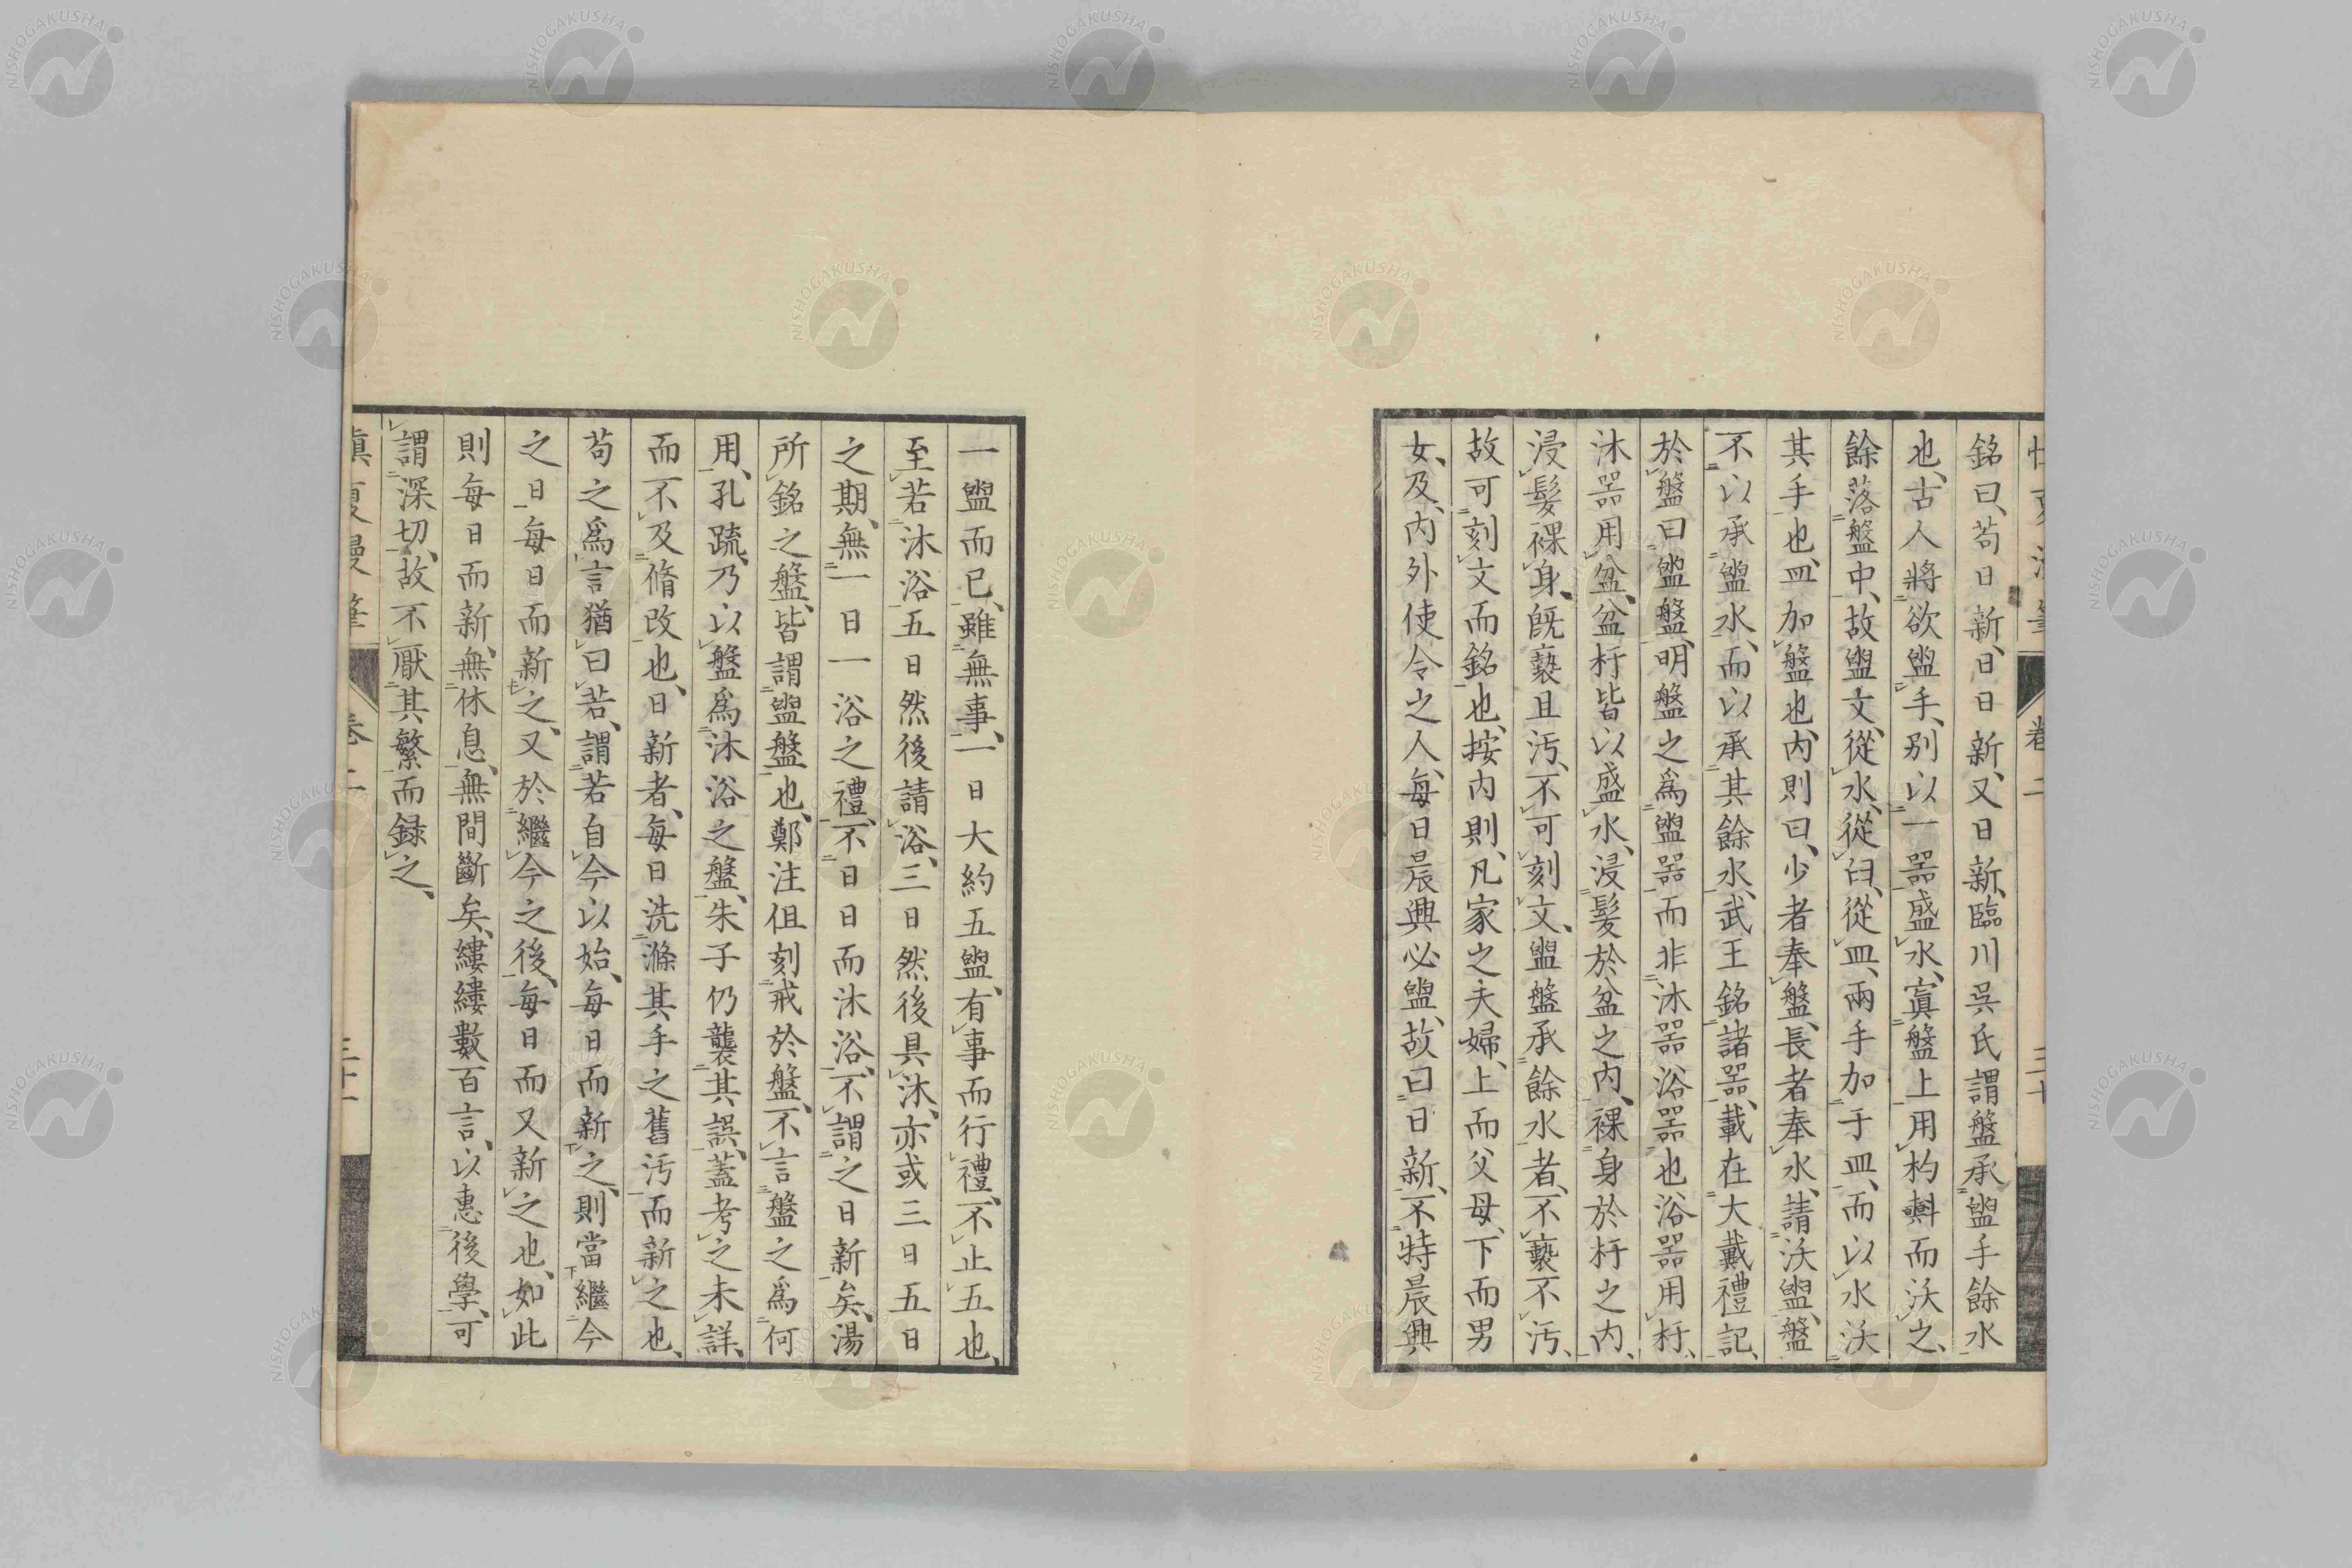 銘曰、苟日新、日日新、又日新、臨川吳氏謂盤承盥手餘水
也、古人將欲盥手、別以一器盛水、寘盤上、用杓㪺而沃之、
餘落盤中、故盥文、從水、從臼、從皿、兩手加于皿、而以水沃
其手也、皿加盤也、內則曰、少者奉盤、長者奉水、請沃盥、盤
不以承盥水、而以承其餘水、武王銘諸器、載在大戴禮記、
於盤曰盥盤、明盤之爲盥器而非沐器浴器也浴器用杅、
沐器用盆、盆杅皆以盛水、浸髮於盆之內、裸身於杅之內、
浸髮裸身、既褻且汚、不可刻文、盥盤承餘水者、不褻不汚、
故可刻文而銘也、按內則、凡家之夫婦、上而父母、下而男
女、及內外使令之人、每日晨興必盥、故曰日新、不特晨興
一盥而已、雖無事、一日大約五盥、有事而行禮、不止五也、
至若沐浴五日然後請浴、三日然後具沐、亦或三日五日
之期、無一日一浴之禮、不日日而沐浴、不謂之日新矣、湯
所銘之盤、皆謂盥盤也、鄭注但刻戒於盤、不言盤之爲何
用、孔疏、乃以盤爲沐浴之盤、朱子仍襲其誤、蓋考之未詳、
而不及脩改也、日新者、每日洗滌其手之舊汚而新之也、
苟之爲言猶曰若、謂若自今以始、每日而新之、則當繼今
之日每日而新之、又於繼今之後、每日而又新之也、如此
則每日而新、無休息、無間斷矣、縷縷數百言、以惠後學、可
謂深切、故不厭其繁而録之、
卷二
三十一
NISHOGAKUSHA